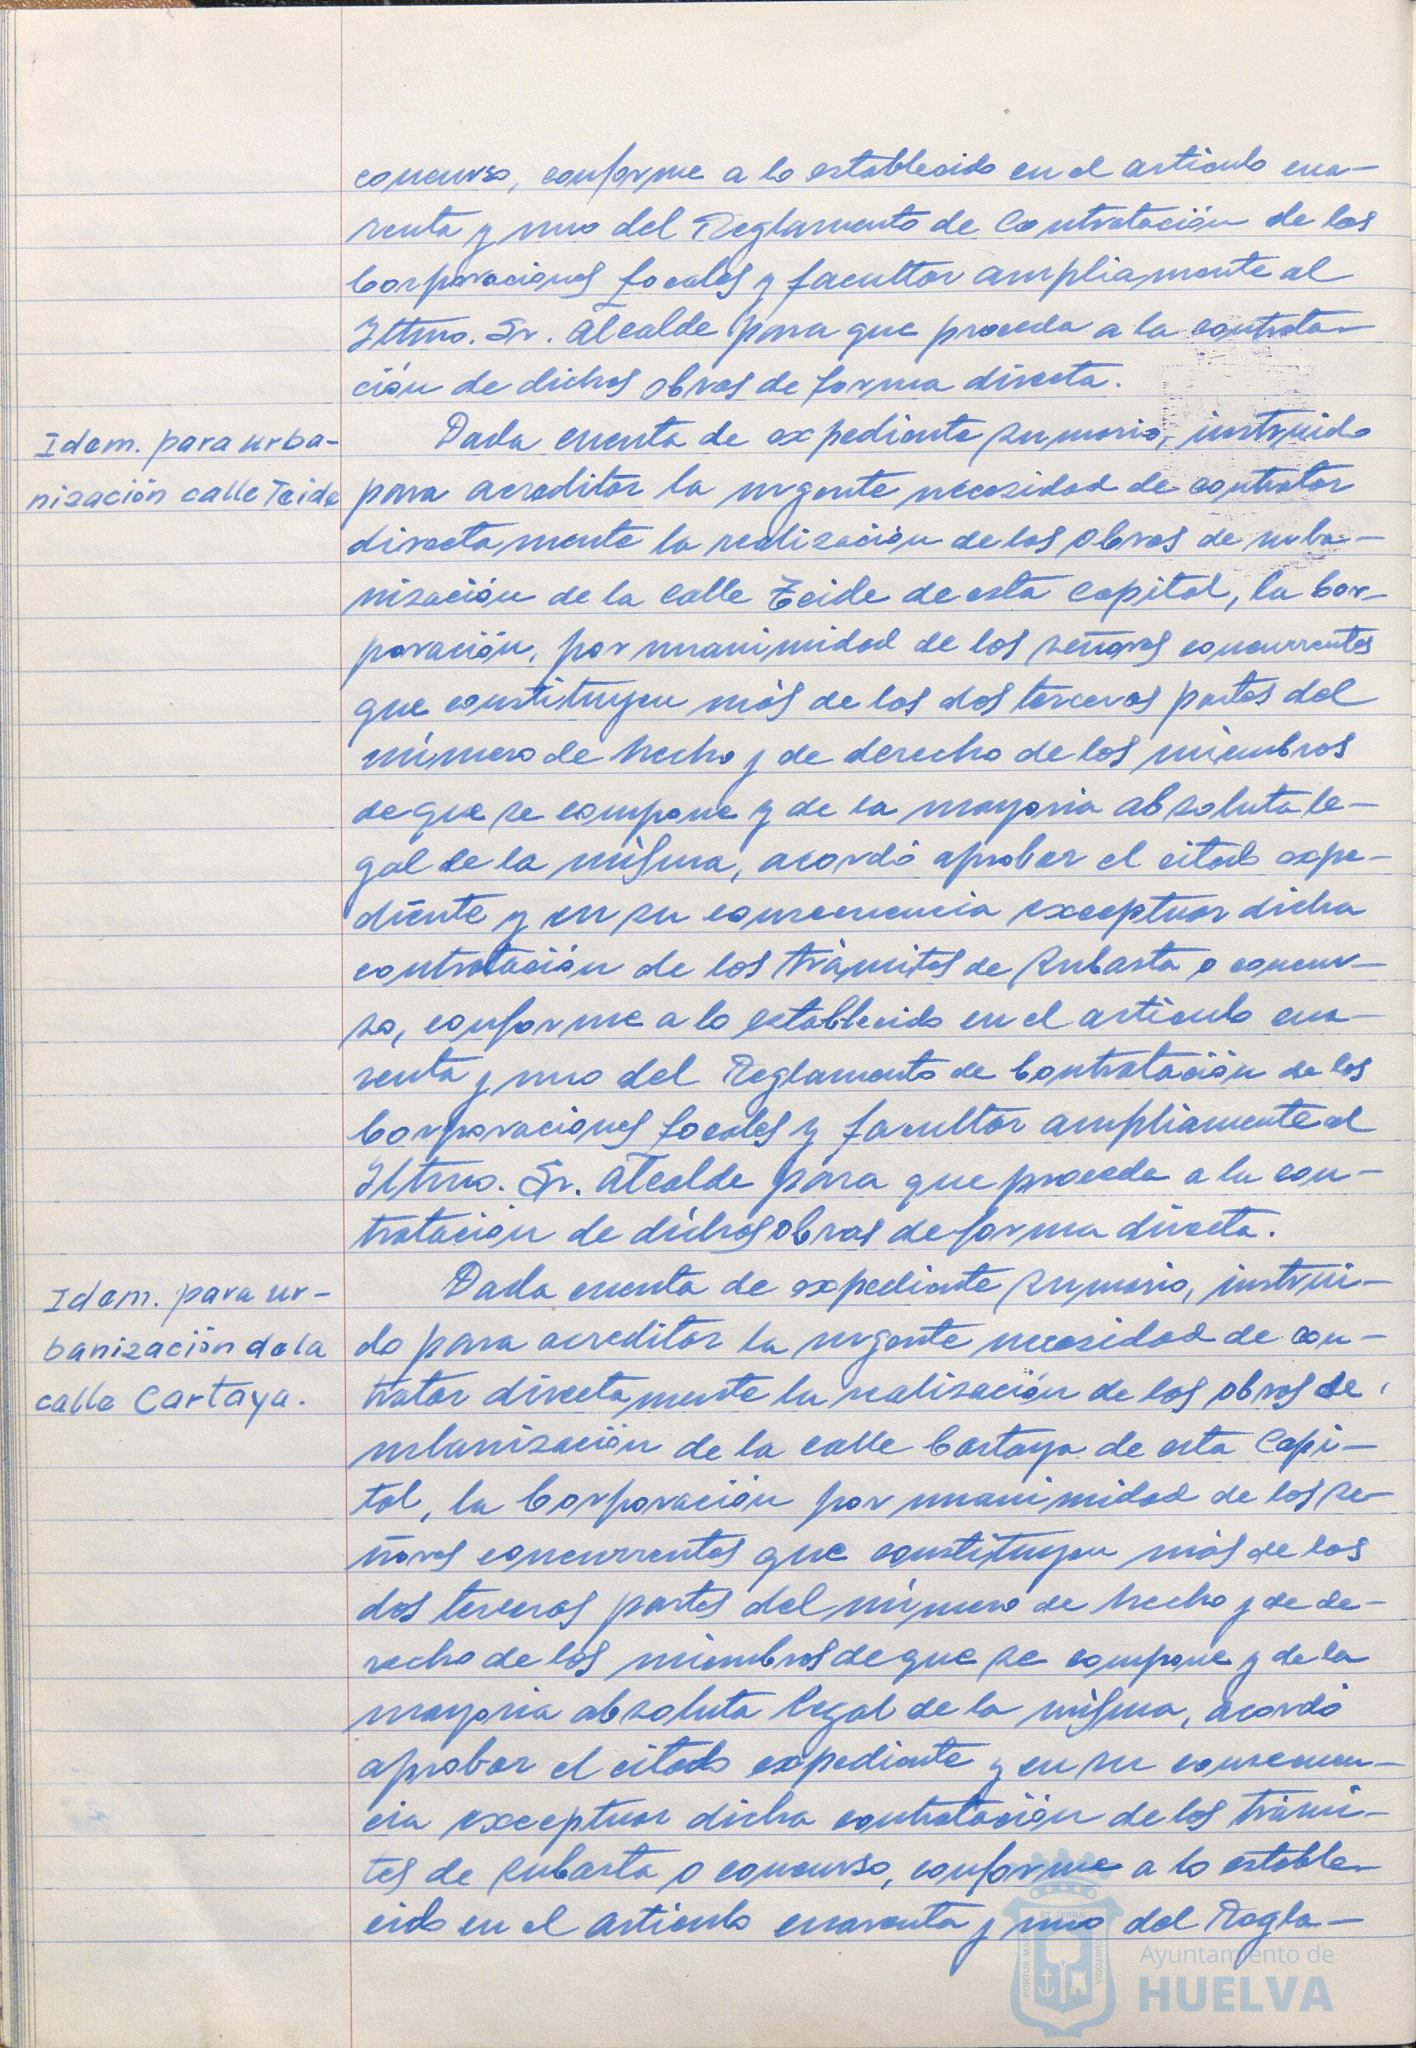 concurso, conforme a lo establecido en el articulo cua-
renta y uno del Reglamento de Contratación de las
Corporaciones Locales y facultar ampliamente al
Iltmo. Sr. Alcalde para que proceda a la contrata-
ción de dichas obras de forma directa.
Idem. para urba-
nización calle Teide
Dada cuenta de expediente sumario, instruido
para acreditar la urgente necesidad de contratar
directamente la realización de las obras de urba-
nización de la calle Teide de esta Capital, la Cor-
poración, por unanimidad de los señores concurrentes
que constituyen más de las dos terceras partes del
número de hecho y de derecho de los miembros
de que se compone y de la mayoria absoluta le-
gal de la misma, acordó aprobar el citado expe-
diente y en su consecuencia exceptuar dicha
contratación de los trámites de subasta o concur-
so, conforme a lo establecido en el articulo cua-
renta y uno del Reglamento de Contratación de las
Corporaciones Locales y facultar ampliamente al
Iltmo. Sr. Alcalde para que proceda a la con-
tratación de dichas obras de forma directa.
Idem. para ur-
banización de la
calle Cartaya.
Dada cuenta de expediente sumario, instrui-
do para acreditar la urgente necesidad de con-
tratar directamente la realización de las obras de
urbanización de la calle Cartaya de esta Capi-
tal, la Corporación por unanimidad de los se-
ñores concurrentes que constituyen más de las
dos terceras partes del número de hecho y de de-
recho de los miembros de que se compone y de la
mayoria absoluta legal de la misma, acordó
aprobar el citado expediente y en su consecuen-
cia exceptuar dicha contratación de los trámi-
tes de subasta o concurso, conforme a lo estable-
cido en el articulo cuarenta y uno del Regla-
Ayuntamiento de
HUELVA